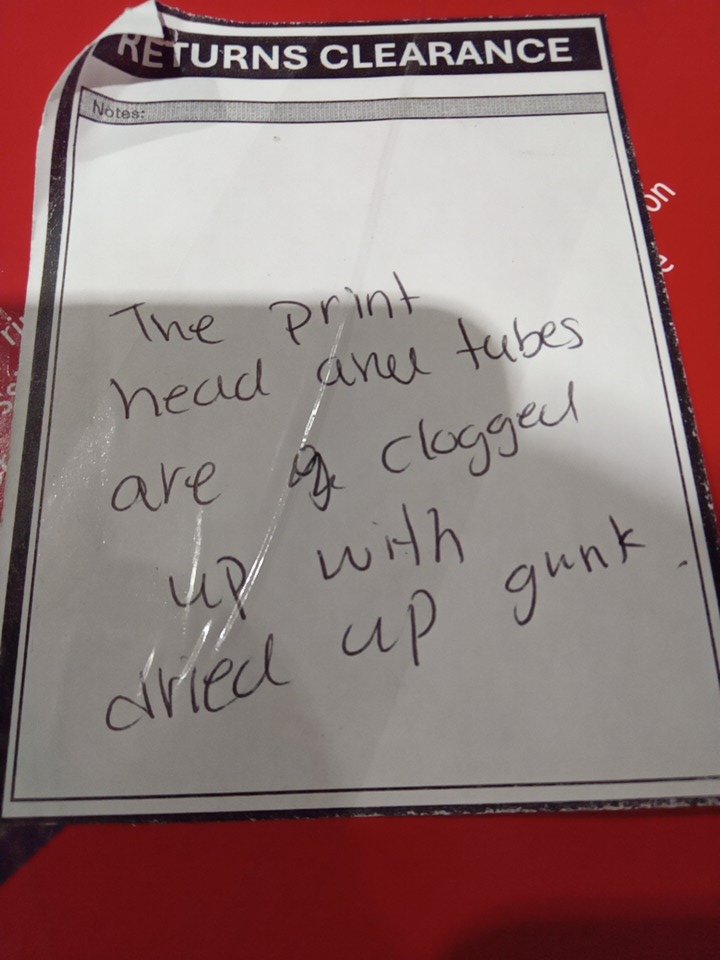 RETURNS CLEARANCE
Notes:
The print
head and tubes
are clogged
up with
dried up gunk.
on